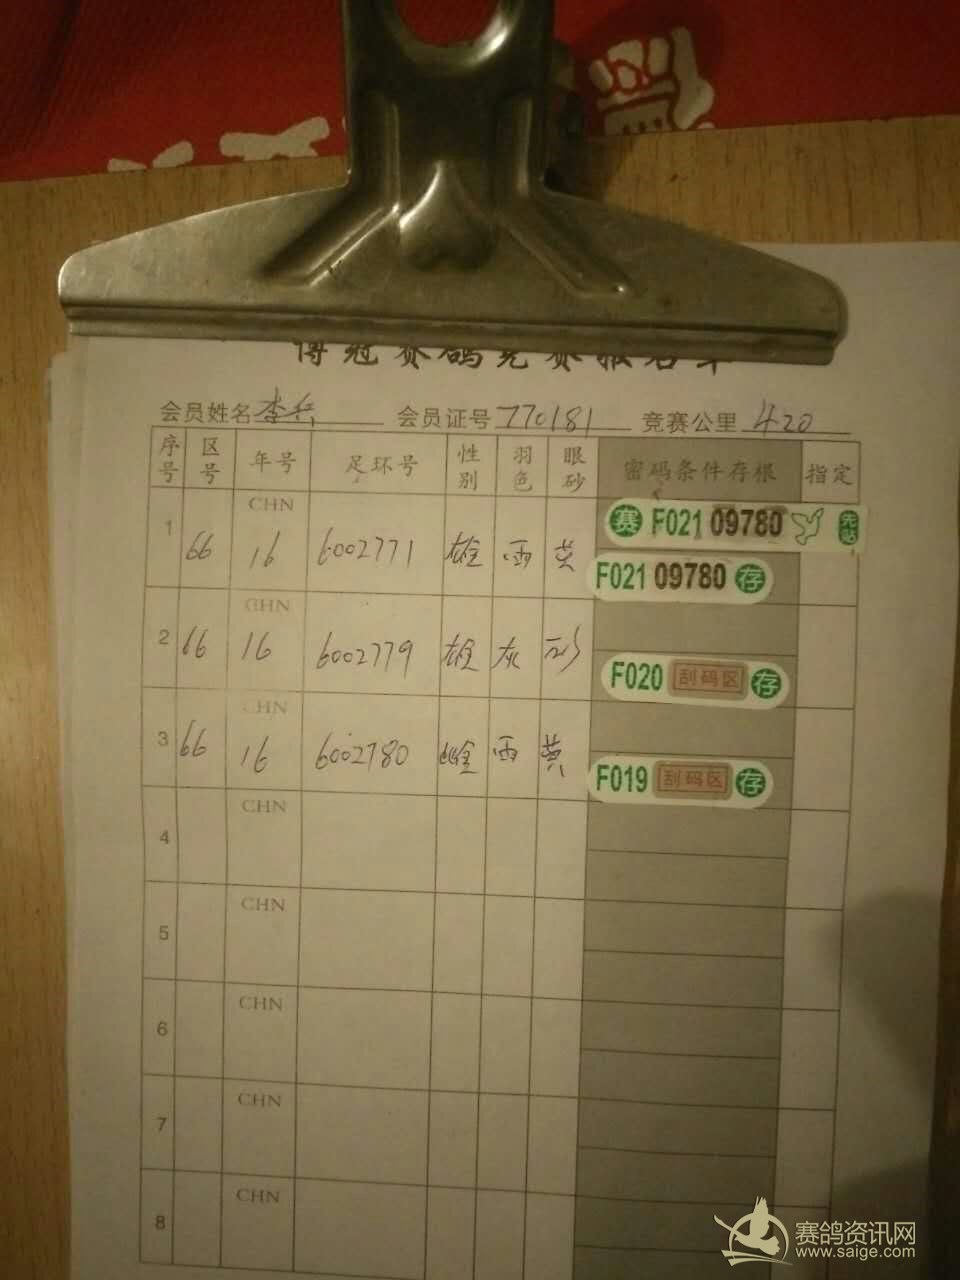 博冠赛鸽竞赛报名单
会员姓名李兵 会员证号770181 竞赛公里420
序号 区号 年号 足环号 性别 羽色 眼砂 密码条件存根 指定
1 66 CHN 16 6002771 雄 雨 黄 赛 F021 09780
F021 09780 存
2 66 CHN 16 6002779 雄 灰 砂 F020 刮码区 存
3 66 CHN 16 6002780 雌 雨 黄 F019 刮码区 存
4 CHN
5 CHN
6 CHN
7 CHN
8 CHN
赛鸽资讯网
www.saige.com